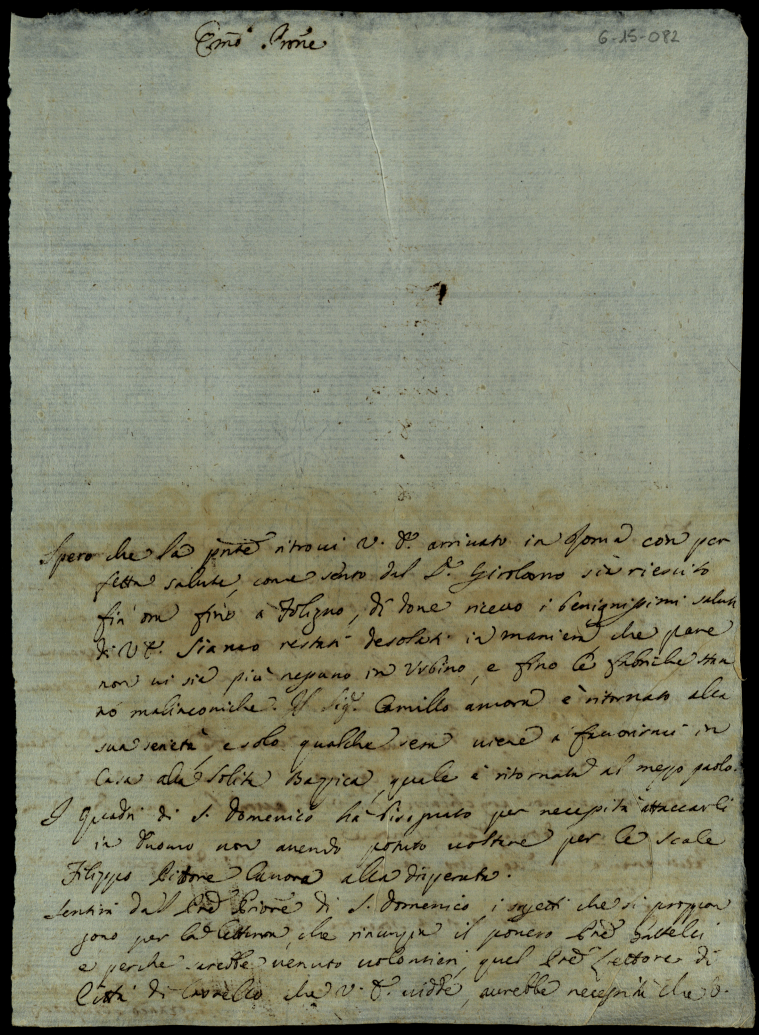 Em̃o Prone
6-15-082
Spero che la pñte ritrovi V. E. arrivato in Roma con per
fetta salute, come sento dal Sr. Girolamo sia riescito
fin' ora fino a Foligno, di dove ricevo i benignissimi saluti
di V. E. Siamo restati desolati in maniera che pare
non vi sia più nessuno in Urbino, e fino le fabriche stan
no malinconiche. Il Sigr. Camillo ancora è ritornato alla
sua serietà e solo qualche sera viene a favorirci in
Casa alla solita Bazzica, quale è ritornata al mezzo paolo.
I Quadri di S. Domenico ha bisognato per necessità attaccarli
in Duomo non avendo potuto voltare per le scale
Filippo Pittore lavora alla disperata.
Sentirà dal Pre Priore di S. Domenico i sogetti che si propon
gono per la lettura, che rinunzia il povero Pre Battelli
e perche sarebbe venuto volontieri quel Pre Lettore di
Città di Castello che V. E. vidde, averebbe necessità che V.